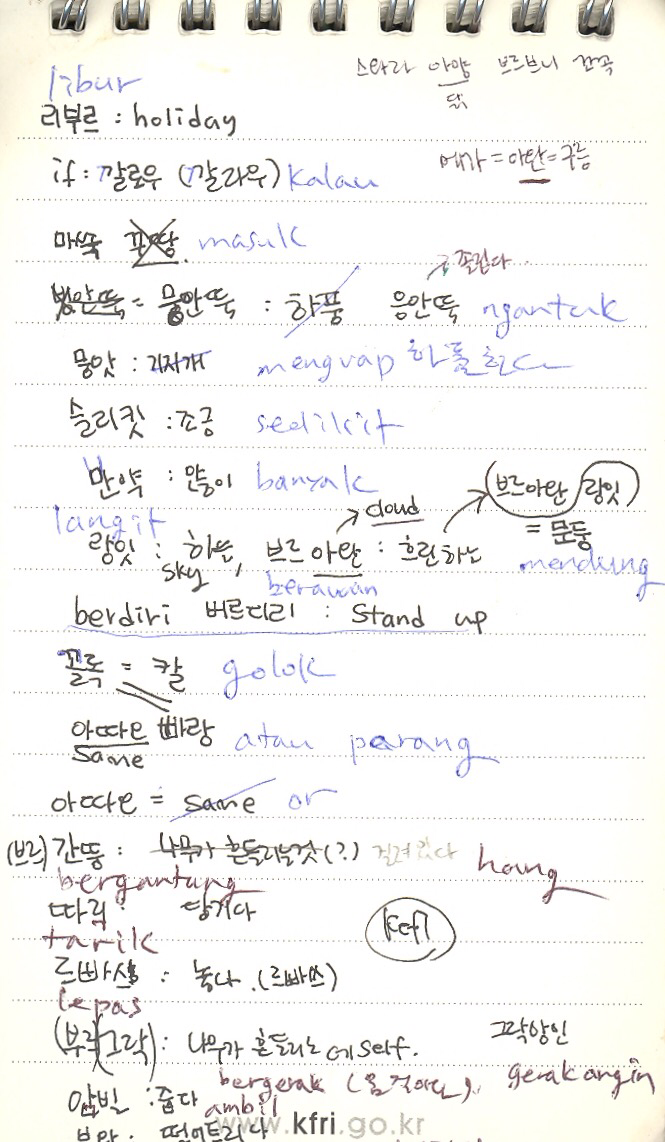 libur
리부르 : holiday
스타라 아얌 브르브니 깐꼭
닭
if : 깔로우 (깔라우) kalau
메가 = 아완 = 구름
마쑥 masuk
졸린다
븡안뚝 = 몽안뚝 : 하품 응안뚝 ngantuk
몽압 : 기지개 mengvap
슬리킷 : 조금 sedikit
반약 : 많이 banyak
브르아완 랑잇
cloud
= 문둥
mendung
langit
랑잇 : 하늘, 브르아완 : 흐린하늘
sky
berawan
berdiri 버르디리 : Stand up
골록 = 칼 golok
아따으 빠랑 atau parang
same
아따으 = same or
(브르) 간뚱 : 나무가 흔들리는것 (?) 걸려있다 hang
bergantung
따릭 : 당기다
tarik
르빠스 : 놓다. (르빠쓰)
lepas
(부르(그락) : 나무가 흔들리는 것 self.
그락앙인
bergerak (움직이다). gerak angin
암빌 : 줍다 ambil
www.kfri.go.kr